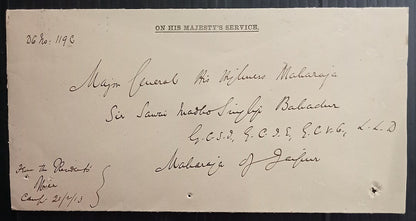 ON HIS MAJESTY'S SERVICE.
DO No: 119C
Major General His Highness Maharaja
Sir Sawai Madho Singhji Bahadur
G.C.S.I, G.C.I.E, G.C.V.O, L.L.D
Maharaja of Jaipur
From the Resident's
Office
Camp